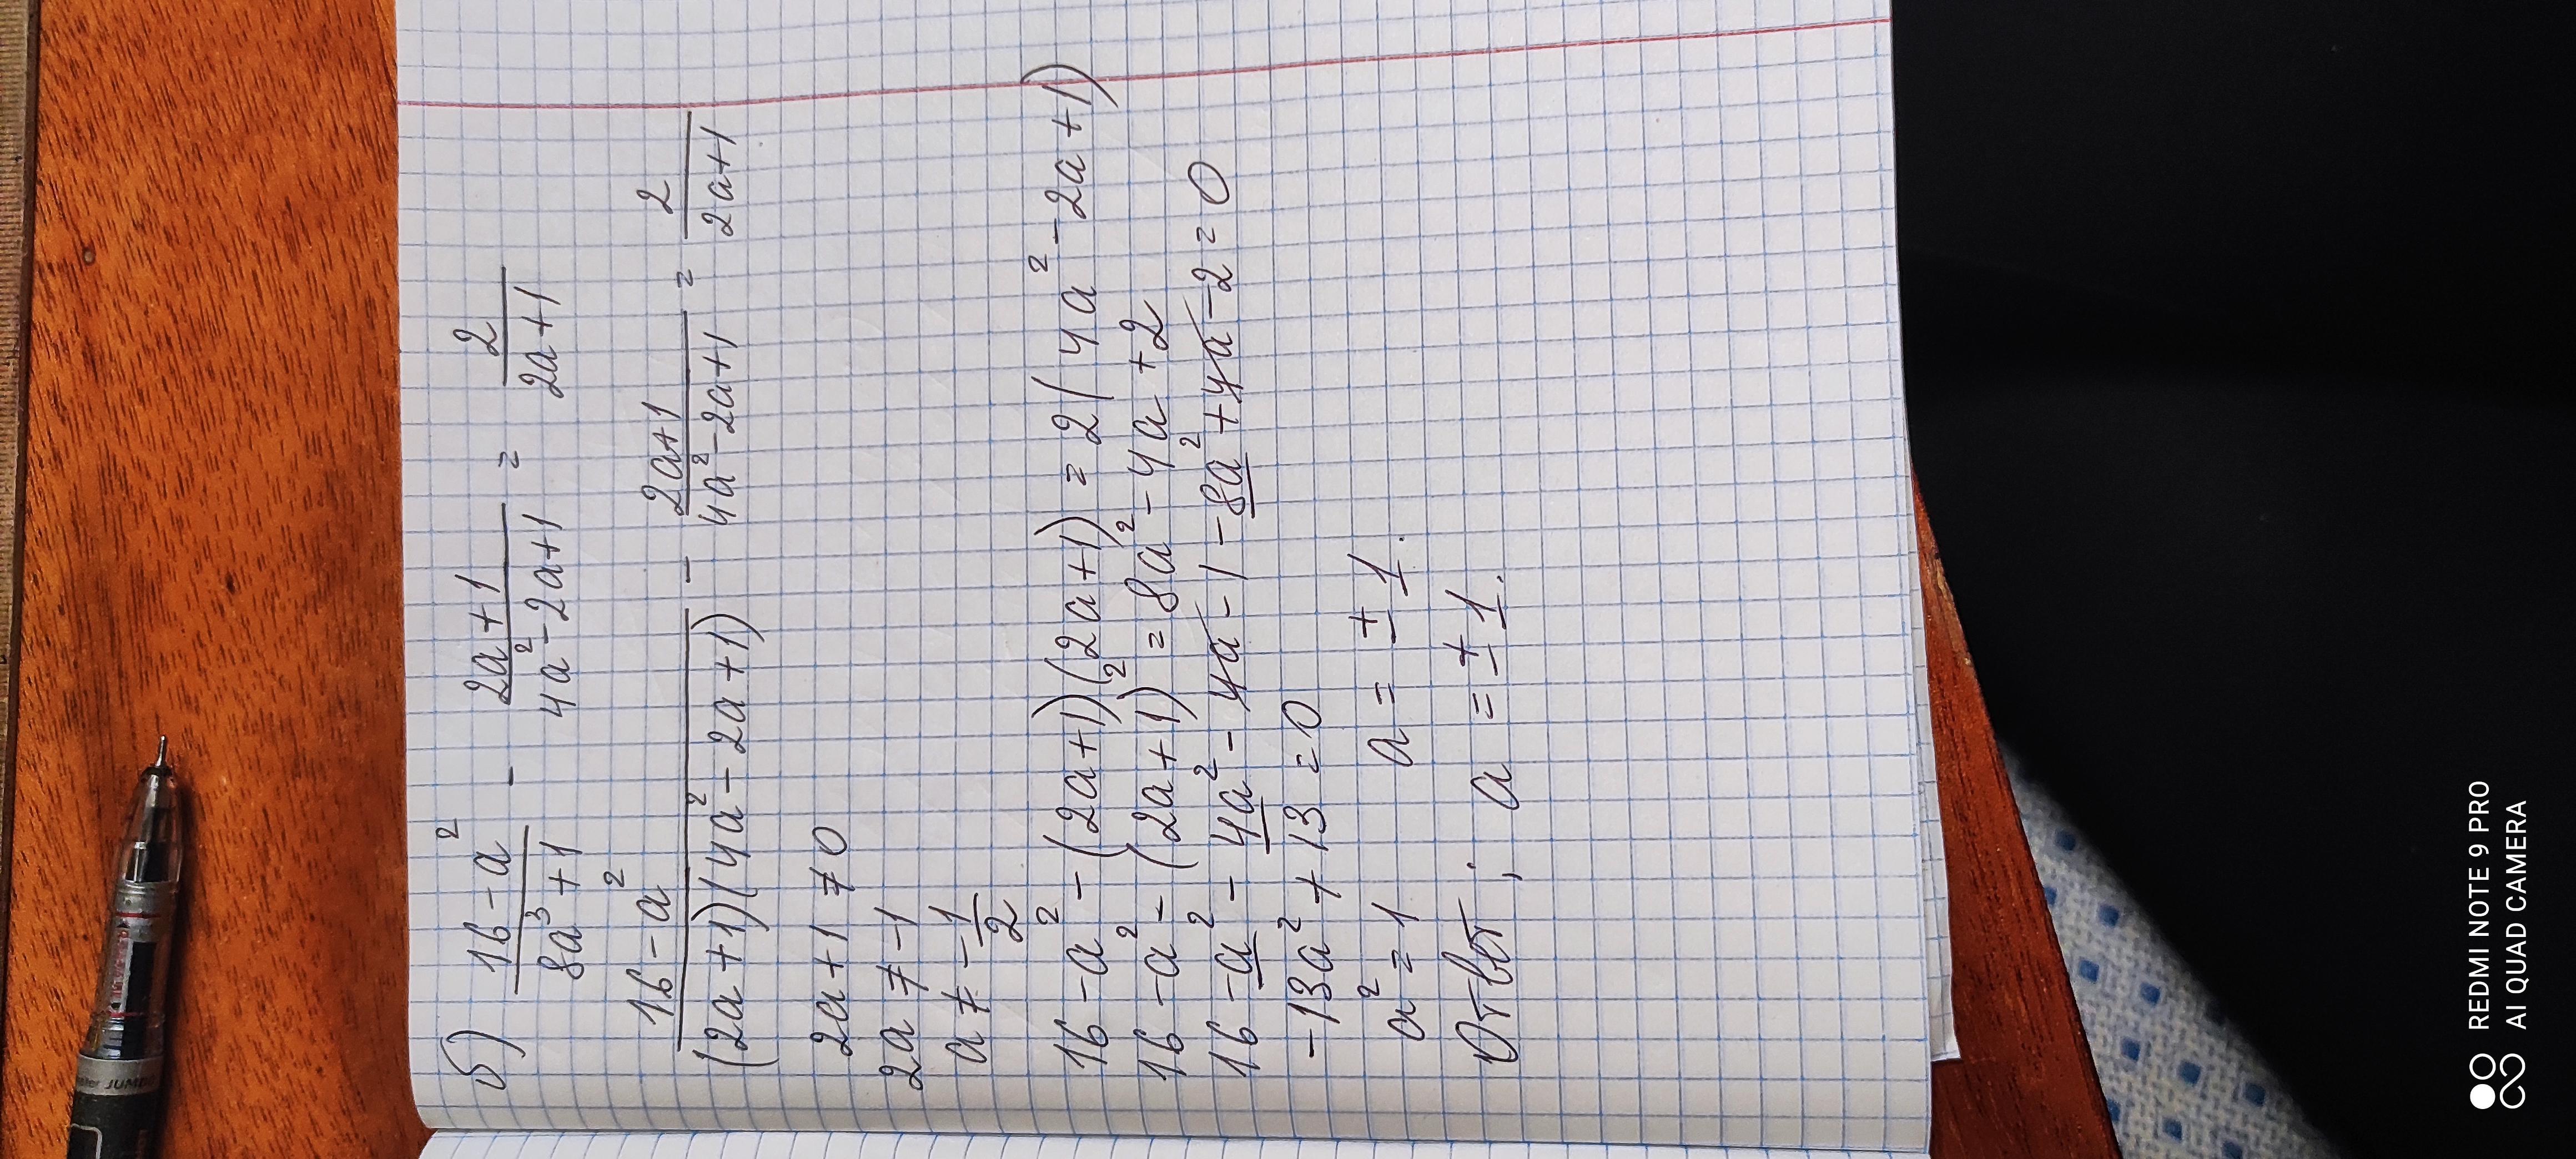 б) (16 - a²)/(8a³ + 1) - (2a + 1)/(4a² - 2a + 1) = 2/(2a + 1)
(16 - a²)/((2a + 1)(4a² - 2a + 1)) - (2a + 1)/(4a² - 2a + 1) = 2/(2a + 1)
2a + 1 ≠ 0
2a ≠ -1
a ≠ -1/2
16 - a² - (2a + 1)(2a + 1) = 2(4a² - 2a + 1)
16 - a² - (2a + 1)² = 8a² - 4a + 2
16 - a² - 4a² - 4a - 1 - 8a² + 4a - 2 = 0
-13a² + 13 = 0
a² = 1 a = ± 1.
Ответ; a = ± 1.
REDMI NOTE 9 PRO
AI QUAD CAMERA